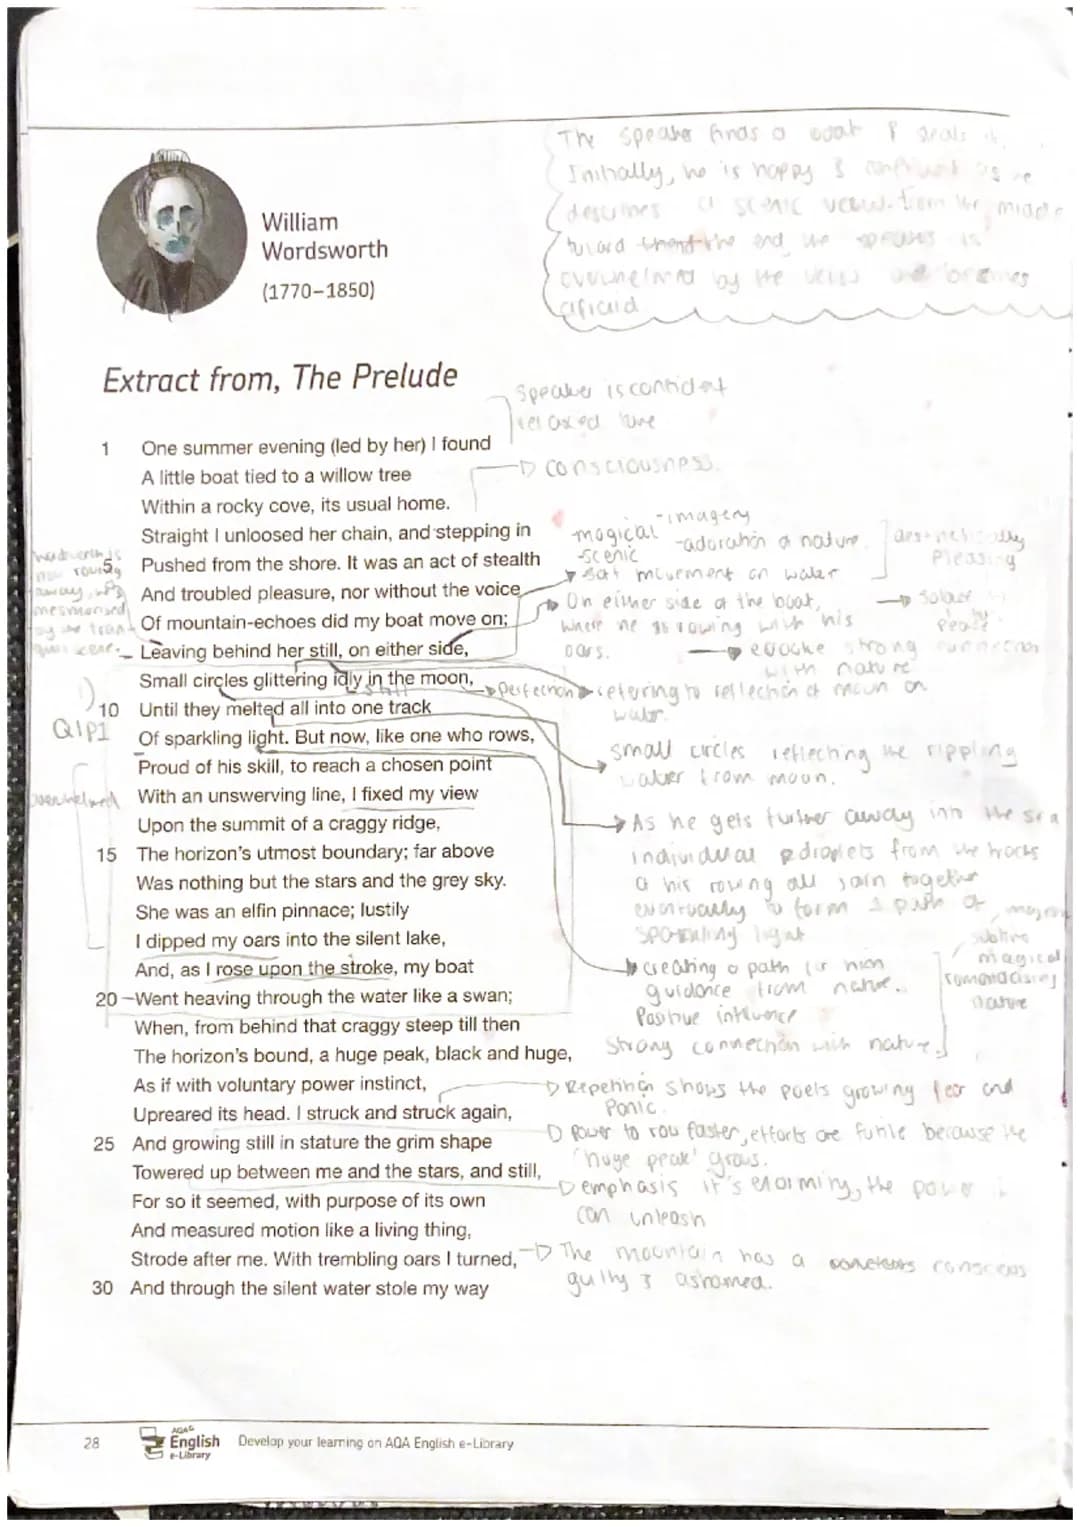 The speaker finds a boat & steals it.
Initially, he is happy & confident as he
describes a scenic view. From the middle
toward the end, the speaker is
overwhelmed by the views and becomes
afraid
William
Wordsworth
(1770–1850)
Extract from, The Prelude
Speaker is confident
relaxed tone
1 One summer evening (led by her) I found
A little boat tied to a willow tree
→ consciousness.
Within a rocky cove, its usual home.
Straight I unloosed her chain, and stepping in
-magical -imagery
-scenic -adoration of nature.
aesthetically
pleasing
5 Pushed from the shore. It was an act of stealth
→ soft movement on water
And troubled pleasure, nor without the voice
Of mountain-echoes did my boat move on;
→ On either side of the boat,
where he is rowing with his
oars.
→ solace
peace
→ evoke strong connection
with nature
now rowing
away,
mesmerised
by the
Leaving behind her still, on either side,
Small circles glittering idly in the moon,
still
→ perfection → refering to reflection of moon on
water.
1)
Q1P1
10 Until they melted all into one track
Of sparkling light. But now, like one who rows,
small circles reflecting the rippling
water from moon.
Proud of his skill, to reach a chosen point
overwhelmed
With an unswerving line, I fixed my view
Upon the summit of a craggy ridge,
→ As he gets further away into the sea
individual droplets from the tracks
of his rowing all join together
eventually to form 1 path of
sparkling light
15 The horizon's utmost boundary; far above
Was nothing but the stars and the grey sky.
She was an elfin pinnace; lustily
I dipped my oars into the silent lake,
And, as I rose upon the stroke, my boat
→ creating a path for him
guidance from nature.
Positive influence
Strong connection with nature.
magical
romanticising
nature
20 Went heaving through the water like a swan;
When, from behind that craggy steep till then
The horizon's bound, a huge peak, black and huge,
As if with voluntary power instinct,
→ Repetition shows the poets growing fear and
Panic.
Upreared its head. I struck and struck again,
→ power to row faster, efforts are futile because the
'huge peak' grows.
25 And growing still in stature the grim shape
Towered up between me and the stars, and still,
→ emphasis it's enormity, the power it
can unleash
For so it seemed, with purpose of its own
And measured motion like a living thing,
Strode after me. With trembling oars I turned,
→ The mountain has a conscious
guilty & ashamed.
30 And through the silent water stole my way
28
AQA
English
e-Library
Develop your learning on AQA English e-Library